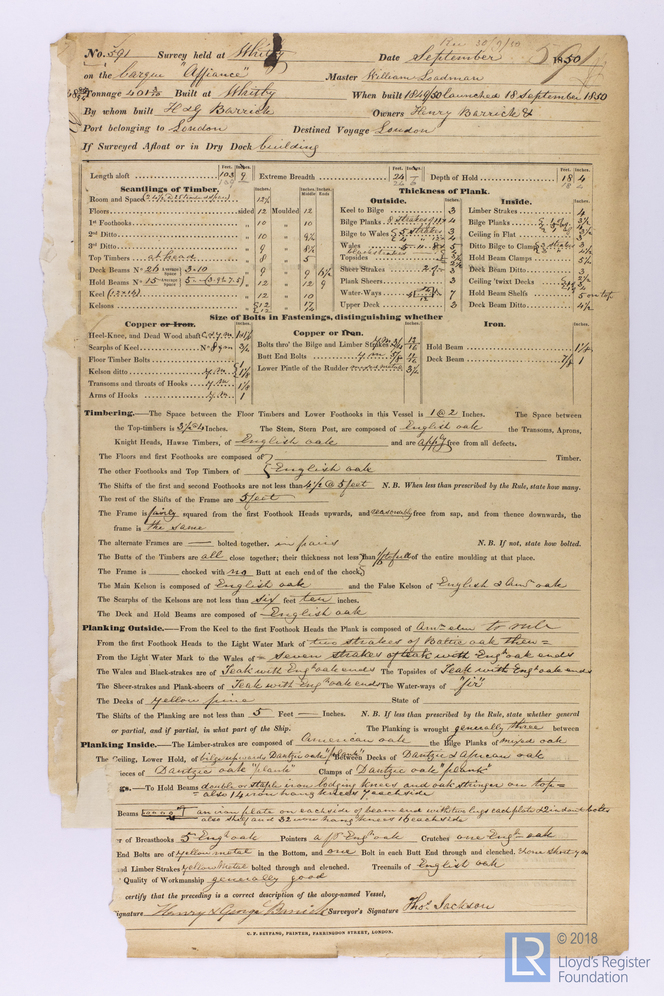 Rec 30/9/50
No. 591 Survey held at Whitby Date September 1850
on the barque "Affiance" Master William Loadman
Tonnage Built at Whitby When built 1849/50 launched 18 September 1850
By whom built H & G Barrick Owners Henry Barrick &
Port belonging to London Destined Voyage London
If Surveyed Afloat or in Dry Dock building
Feet. Inches. Feet. Inches. Feet. Inches.
Length aloft 103 9 Extreme Breadth 24 Depth of Hold 18 4
Scantlings of Timber.
Room and Space 12½
Floors sided 12 Moulded 12
1st Foothooks " 10 " 10
2nd Ditto " 10 "
3rd Ditto " 9 "
Top Timbers " 8 " 5
Deck Beams No 26 Average Space 3-10 " 9 " 9
Hold Beams No 15 Average Space 5 " 12 " 12 9
Keel " 12 " 10
Kelsons
Thickness of Plank.
Outside.
Keel to Bilge 3
Bilge Planks 4
Bilge to Wales
Wales 5
Topsides
Sheer Strakes 3
Plank Sheers 3
Water-Ways 7
Upper Deck 3
Inside.
Limber Strakes 4
Bilge Planks
Ceiling in Flat 3
Ditto Bilge to Clamp
Hold Beam Clamps
Deck Beam Ditto 3
Ceiling 'twixt Decks
Hold Beam Shelfs 5 on top
Deck Beam Ditto 4½
Size of Bolts in Fastenings, distinguishing whether
Copper or Iron.
Heel-Knee, and Dead Wood abaft
Scarphs of Keel No 8
Floor Timber Bolts
Kelson ditto
Transoms and throats of Hooks
Arms of Hooks 1
Copper or Iron.
Bolts thro' the Bilge and Limber Strakes
Butt End Bolts
Lower Pintle of the Rudder
Iron.
Hold Beam
Deck Beam 7/8 1
Timbering.—The Space between the Floor Timbers and Lower Foothooks in this Vessel is 1 @ 2 Inches. The Space between
the Top-timbers is Inches. The Stem, Stern Post, are composed of English oak the Transoms, Aprons,
Knight Heads, Hawse Timbers, of English oak and are free from all defects.
The Floors and first Foothooks are composed of Timber.
The other Foothooks and Top Timbers of English oak
The Shifts of the first and second Foothooks are not less than 4½ @ 5 feet N. B. When less than prescribed by the Rule, state how many.
The rest of the Shifts of the Frame are 5 feet
The Frame is fairly squared from the first Foothook Heads upwards, and free from sap, and from thence downwards, the
frame is the same
The alternate Frames are — bolted together. in pairs N. B. If not, state how bolted.
The Butts of the Timbers are all close together; their thickness not less than of the entire moulding at that place.
The Frame is chocked with no Butt at each end of the chock
The Main Kelson is composed of English oak and the False Kelson of English & Amn oak
The Scarphs of the Kelsons are not less than six feet ten inches.
The Deck and Hold Beams are composed of English oak
Planking Outside.—From the Keel to the First Foothook Heads the Plank is composed of Amn elm to rule
From the first Foothook Heads to the Light Water Mark of two strakes of Baltic oak then =
From the Light Water Mark to the Wales of = seven strakes of teak with Engh oak ends
The Wales and Black-strakes are of Teak with Engh oak ends The Topsides of Teak with Engh oak ends
The Sheer-strakes and Plank-sheers of Teak with Engh oak ends The Water-ways of "fir"
The Decks of yellow pine State of
The Shifts of the Planking are not less than 5 Feet — Inches. N. B. If less than prescribed by the Rule, state whether general
or partial, and if partial, in what part of the Ship. The Planking is wrought generally three between
Planking Inside.—The Limber-strakes are composed of American oak the Bilge Planks of mixed oak
The Ceiling, Lower Hold, of bilge upwards Dantzic oak "plank" Between Decks of Dantzic & African oak
ieces of Dantzic oak "plank" Clamps of Dantzic oak "plank"
gs.—To Hold Beams double or staple iron lodging knees and oak stringer on top =
= also 14 iron hang knees 7 each side
Beams an iron plate on each side of beam end with two lugs each plate
also shelf and 32 iron hang knees 16 each side
r of Breasthooks 5 Engh oak Pointers a pr Engh oak Crutches one Engh oak
End Bolts are of yellow metal in the Bottom, and one Bolt in each Butt End through and clenched.
d Limber Strakes yellow metal bolted through and clenched. Treenails of English oak
Quality of Workmanship generally good
certify that the preceding is a correct description of the above-named Vessel,
ignature Henry & George Barrick Surveyor's Signature Thos Jackson
C. F. SEYFANG, PRINTER, FARRINGDON STREET, LONDON.
LR © 2018
Lloyd's Register
Foundation